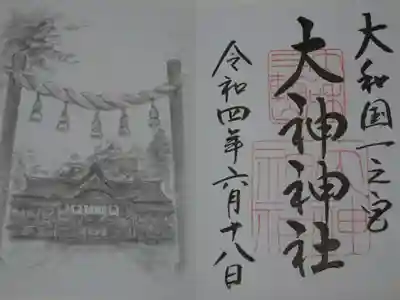 大和国一之宮
大神神社
令和四年六月十八日